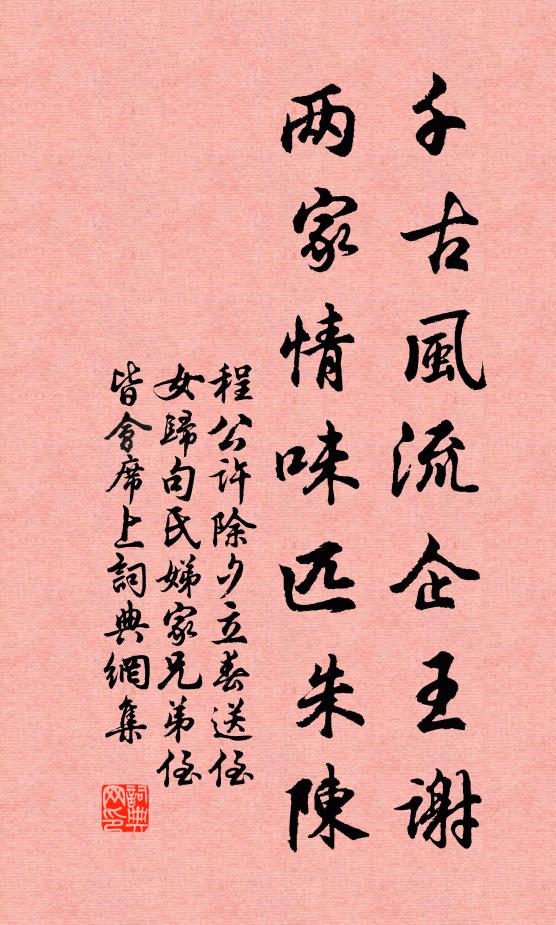 千古風流企王謝
两家情味匹朱陳
程公许除夕立春送侄
女歸句氏娣家兄弟侄
皆會席上詞典網集
詞典网印